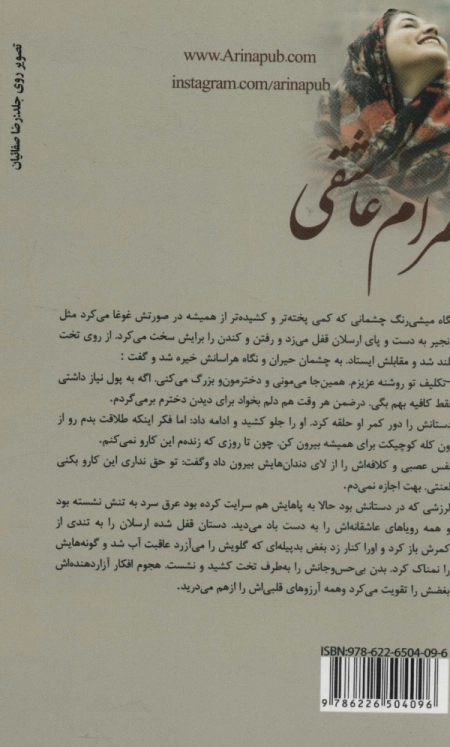 www.Arinapub.com
instagram.com/arinapub
تصویر روی جلد: رضا صفائیان
مرام عاشقی
گاه میشی‌رنگ چشمانی که کمی پخته‌تر و کشیده‌تر از همیشه در صورتش غوغا می‌کرد مثل
نجیر به دست و پای ارسلان قفل می‌زد و رفتن و کندن را برایش سخت می‌کرد. از روی تخت
لند شد و مقابلش ایستاد. به چشمان حیران و نگاه هراسانش خیره شد و گفت :
-تکلیف تو روشنه عزیزم. همین‌جا می‌مونی و دخترمون‌و بزرگ می‌کنی. اگه به پول نیاز داشتی
فقط کافیه بهم بگی. درضمن هر وقت هم دلم بخواد برای دیدن دخترم برمی‌گردم.
دستانش را دور کمر او حلقه کرد. او را جلو کشید و ادامه داد: اما فکر اینکه طلاقت بدم رو از
ون کله کوچیکت برای همیشه بیرون کن. چون تا روزی که زنده‌م این کارو نمی‌کنم.
نفس عصبی و کلافه‌اش را از لای دندان‌هایش بیرون داد وگفت: تو حق نداری این کارو بکنی
لعنتی. بهت اجازه نمی‌دم.
لرزشی که در دستانش بود حالا به پاهایش هم سرایت کرده بود عرق سرد به تنش نشسته بود
و همه رویاهای عاشقانه‌اش را به دست باد می‌دید. دستان قفل شده ارسلان را به تندی از
کمرش باز کرد و اورا کنار زد بغض بدپیله‌ای که گلویش را می‌آزرد عاقبت آب شد و گونه‌هایش
را نمناک کرد. بدن بی‌حس‌وجانش را به‌طرف تخت کشید و نشست. هجوم افکار آزاردهنده‌اش
بغضش را تقویت می‌کرد وهمه آرزوهای قلبی‌اش را ازهم می‌درید.
ISBN:978-622-6504-09-6
9 786226 504096